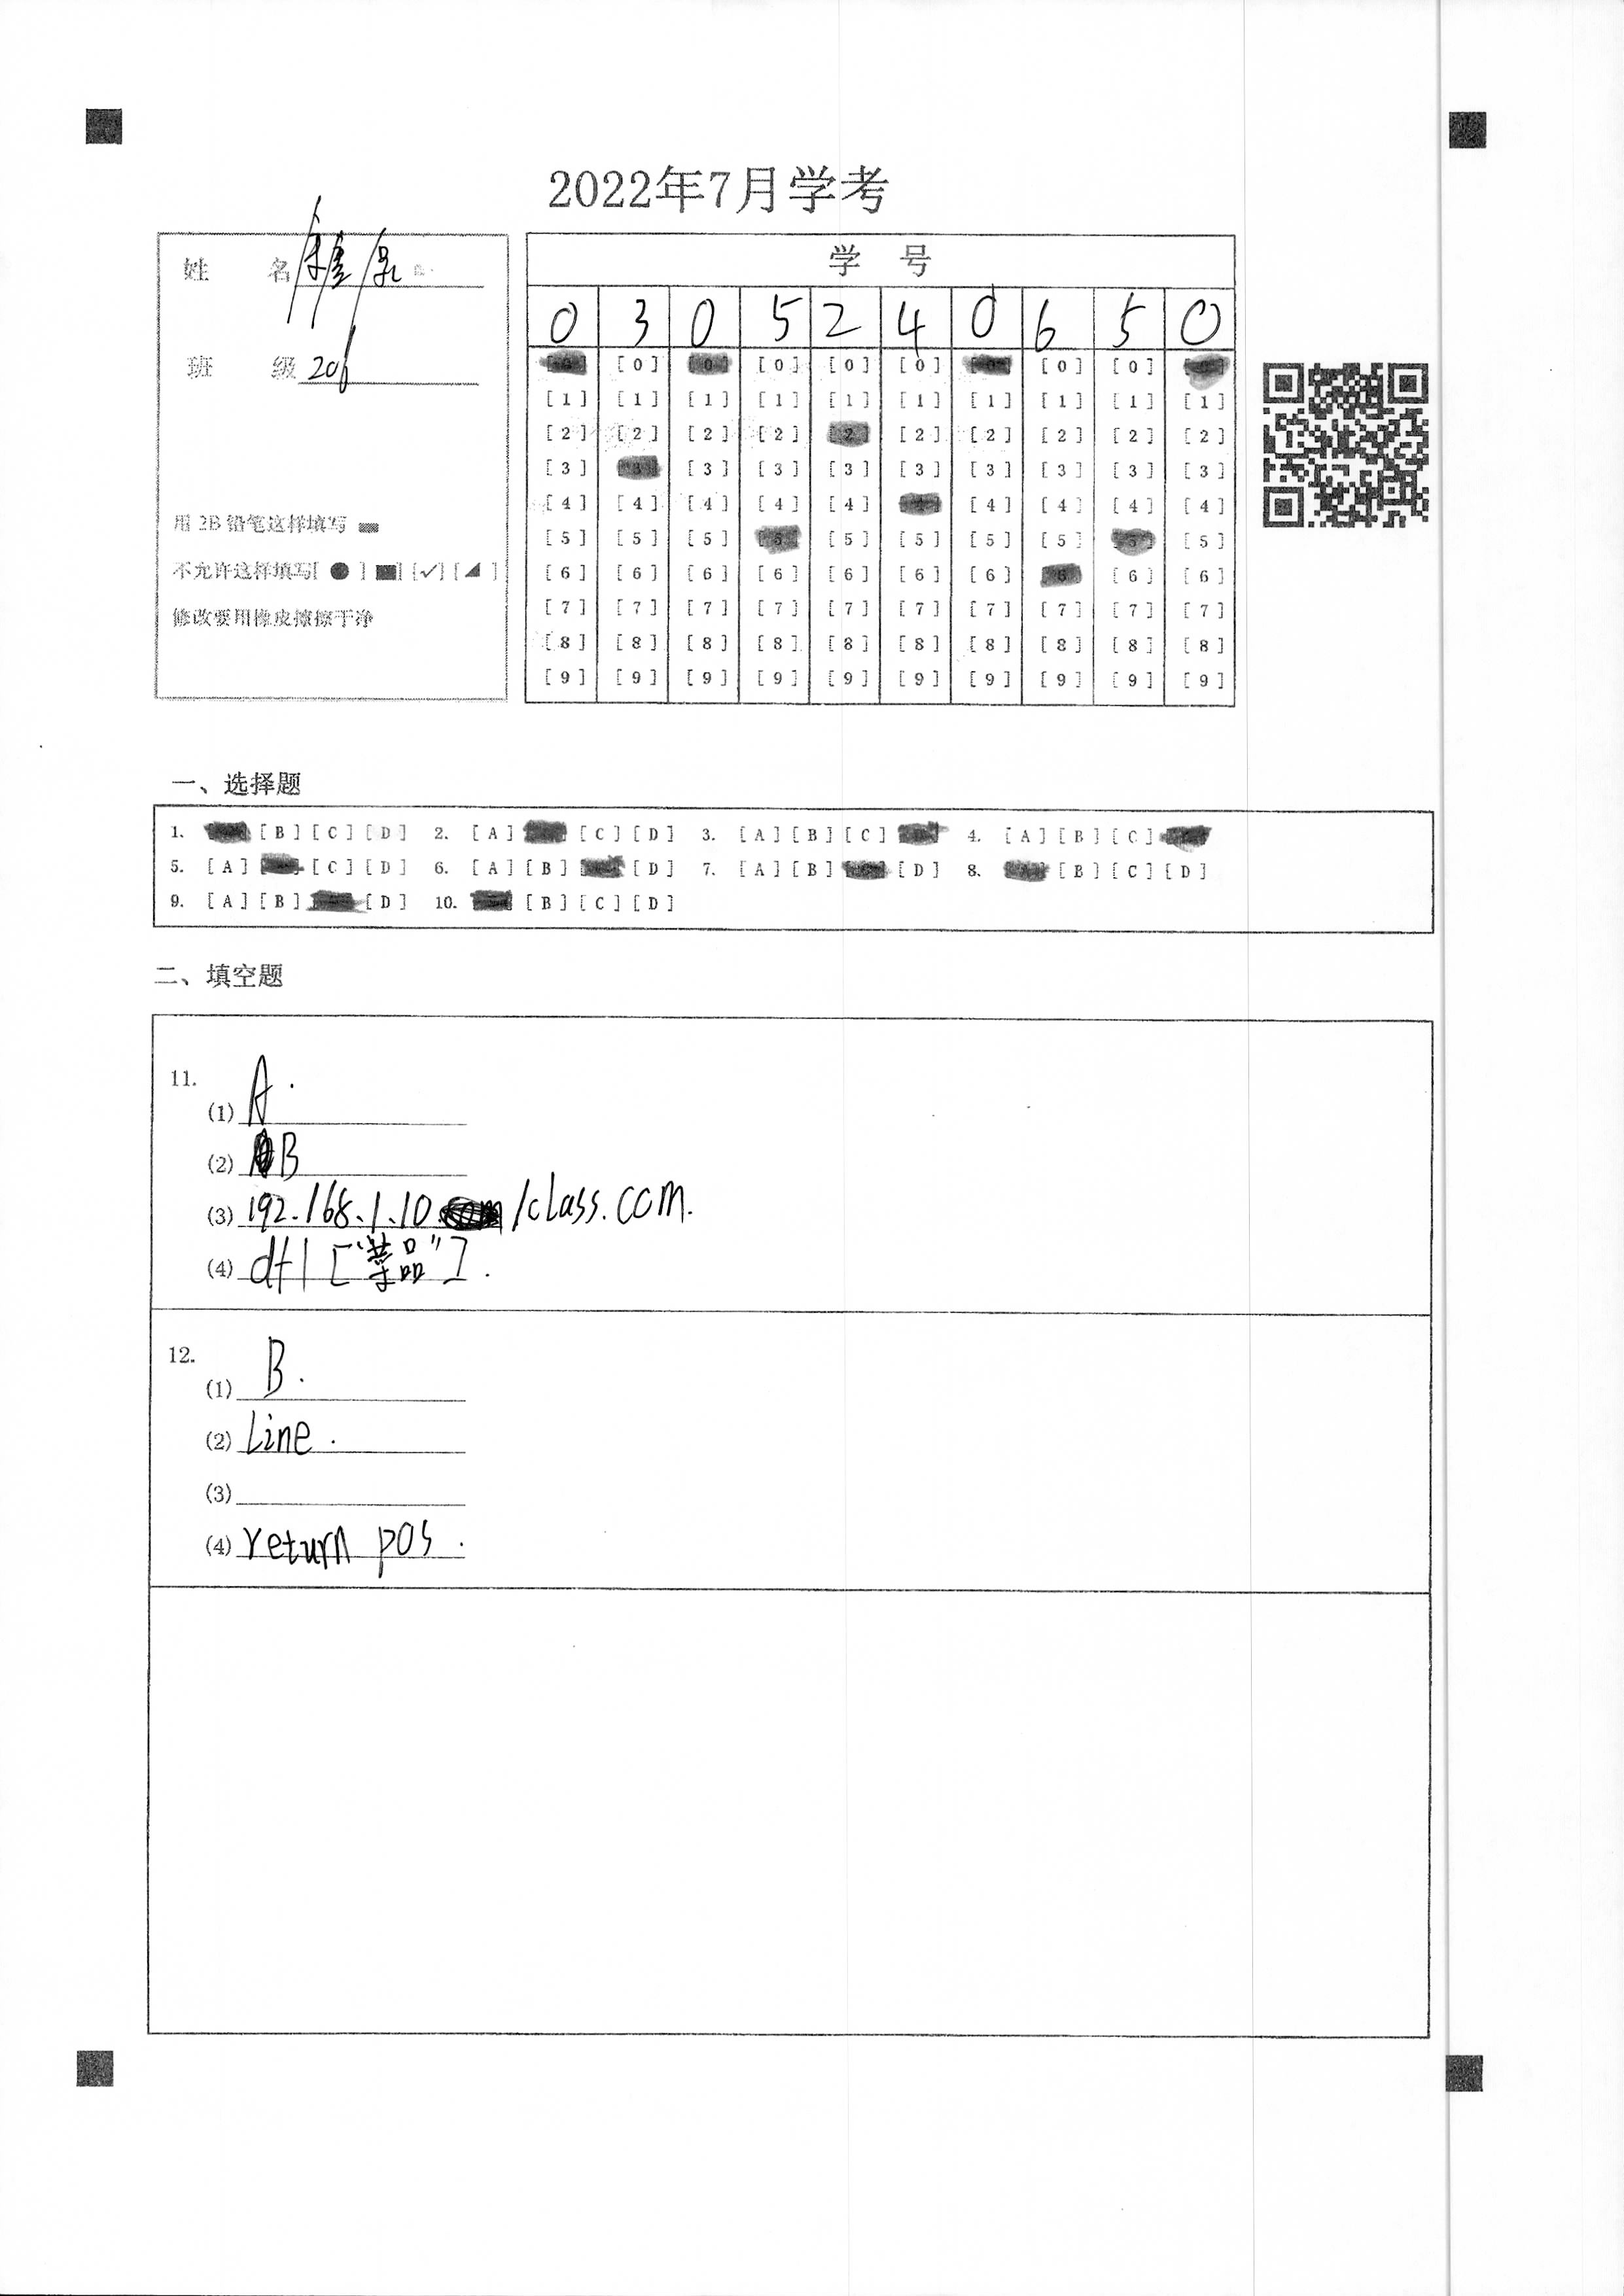 2022年7月学考
姓 名
班 级 206
用 2B 铅笔这样填写
不允许这样填写[ ● ] [■] [✓] [◢ ]
修改要用橡皮擦擦干净
学 号
0 3 0 5 2 4 0 6 5 0
[0] [0] [0] [0] [0] [0] [0] [0] [0] [0]
[1] [1] [1] [1] [1] [1] [1] [1] [1] [1]
[2] [2] [2] [2] [2] [2] [2] [2] [2] [2]
[3] [3] [3] [3] [3] [3] [3] [3] [3] [3]
[4] [4] [4] [4] [4] [4] [4] [4] [4] [4]
[5] [5] [5] [5] [5] [5] [5] [5] [5] [5]
[6] [6] [6] [6] [6] [6] [6] [6] [6] [6]
[7] [7] [7] [7] [7] [7] [7] [7] [7] [7]
[8] [8] [8] [8] [8] [8] [8] [8] [8] [8]
[9] [9] [9] [9] [9] [9] [9] [9] [9] [9]
一、选择题
1. [B] [C] [D] 2. [A] [C] [D] 3. [A] [B] [C] 4. [A] [B] [C]
5. [A] [C] [D] 6. [A] [B] [D] 7. [A] [B] [D] 8. [A] [B] [C] [D]
9. [A] [B] [D] 10. [B] [C] [D]
二、填空题
11.
(1) A.
(2) B
(3) 192.168.1.10 /class.com.
(4) df1["菜品"].
12.
(1) B.
(2) Line.
(3)
(4) return pos.